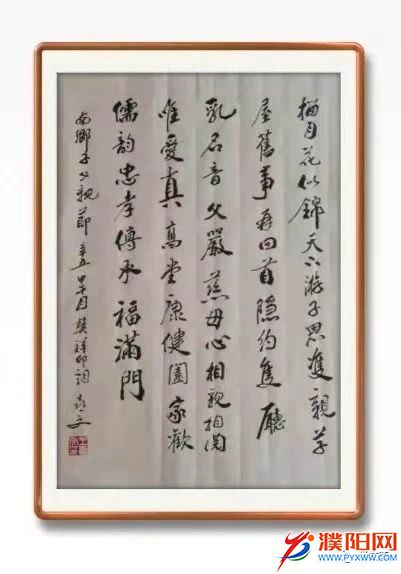 榴月花似錦天下游子思雙親草
屋舊事再回首隐約隻廳
乳名音父嚴慈母心相親相関
唯愛真高堂康健闔家歡
儒韵忠孝傳承福滿門
南鄉子父親節辛丑甲午月樊祥印詞
濮阳网
WWW.PYXWW.COM